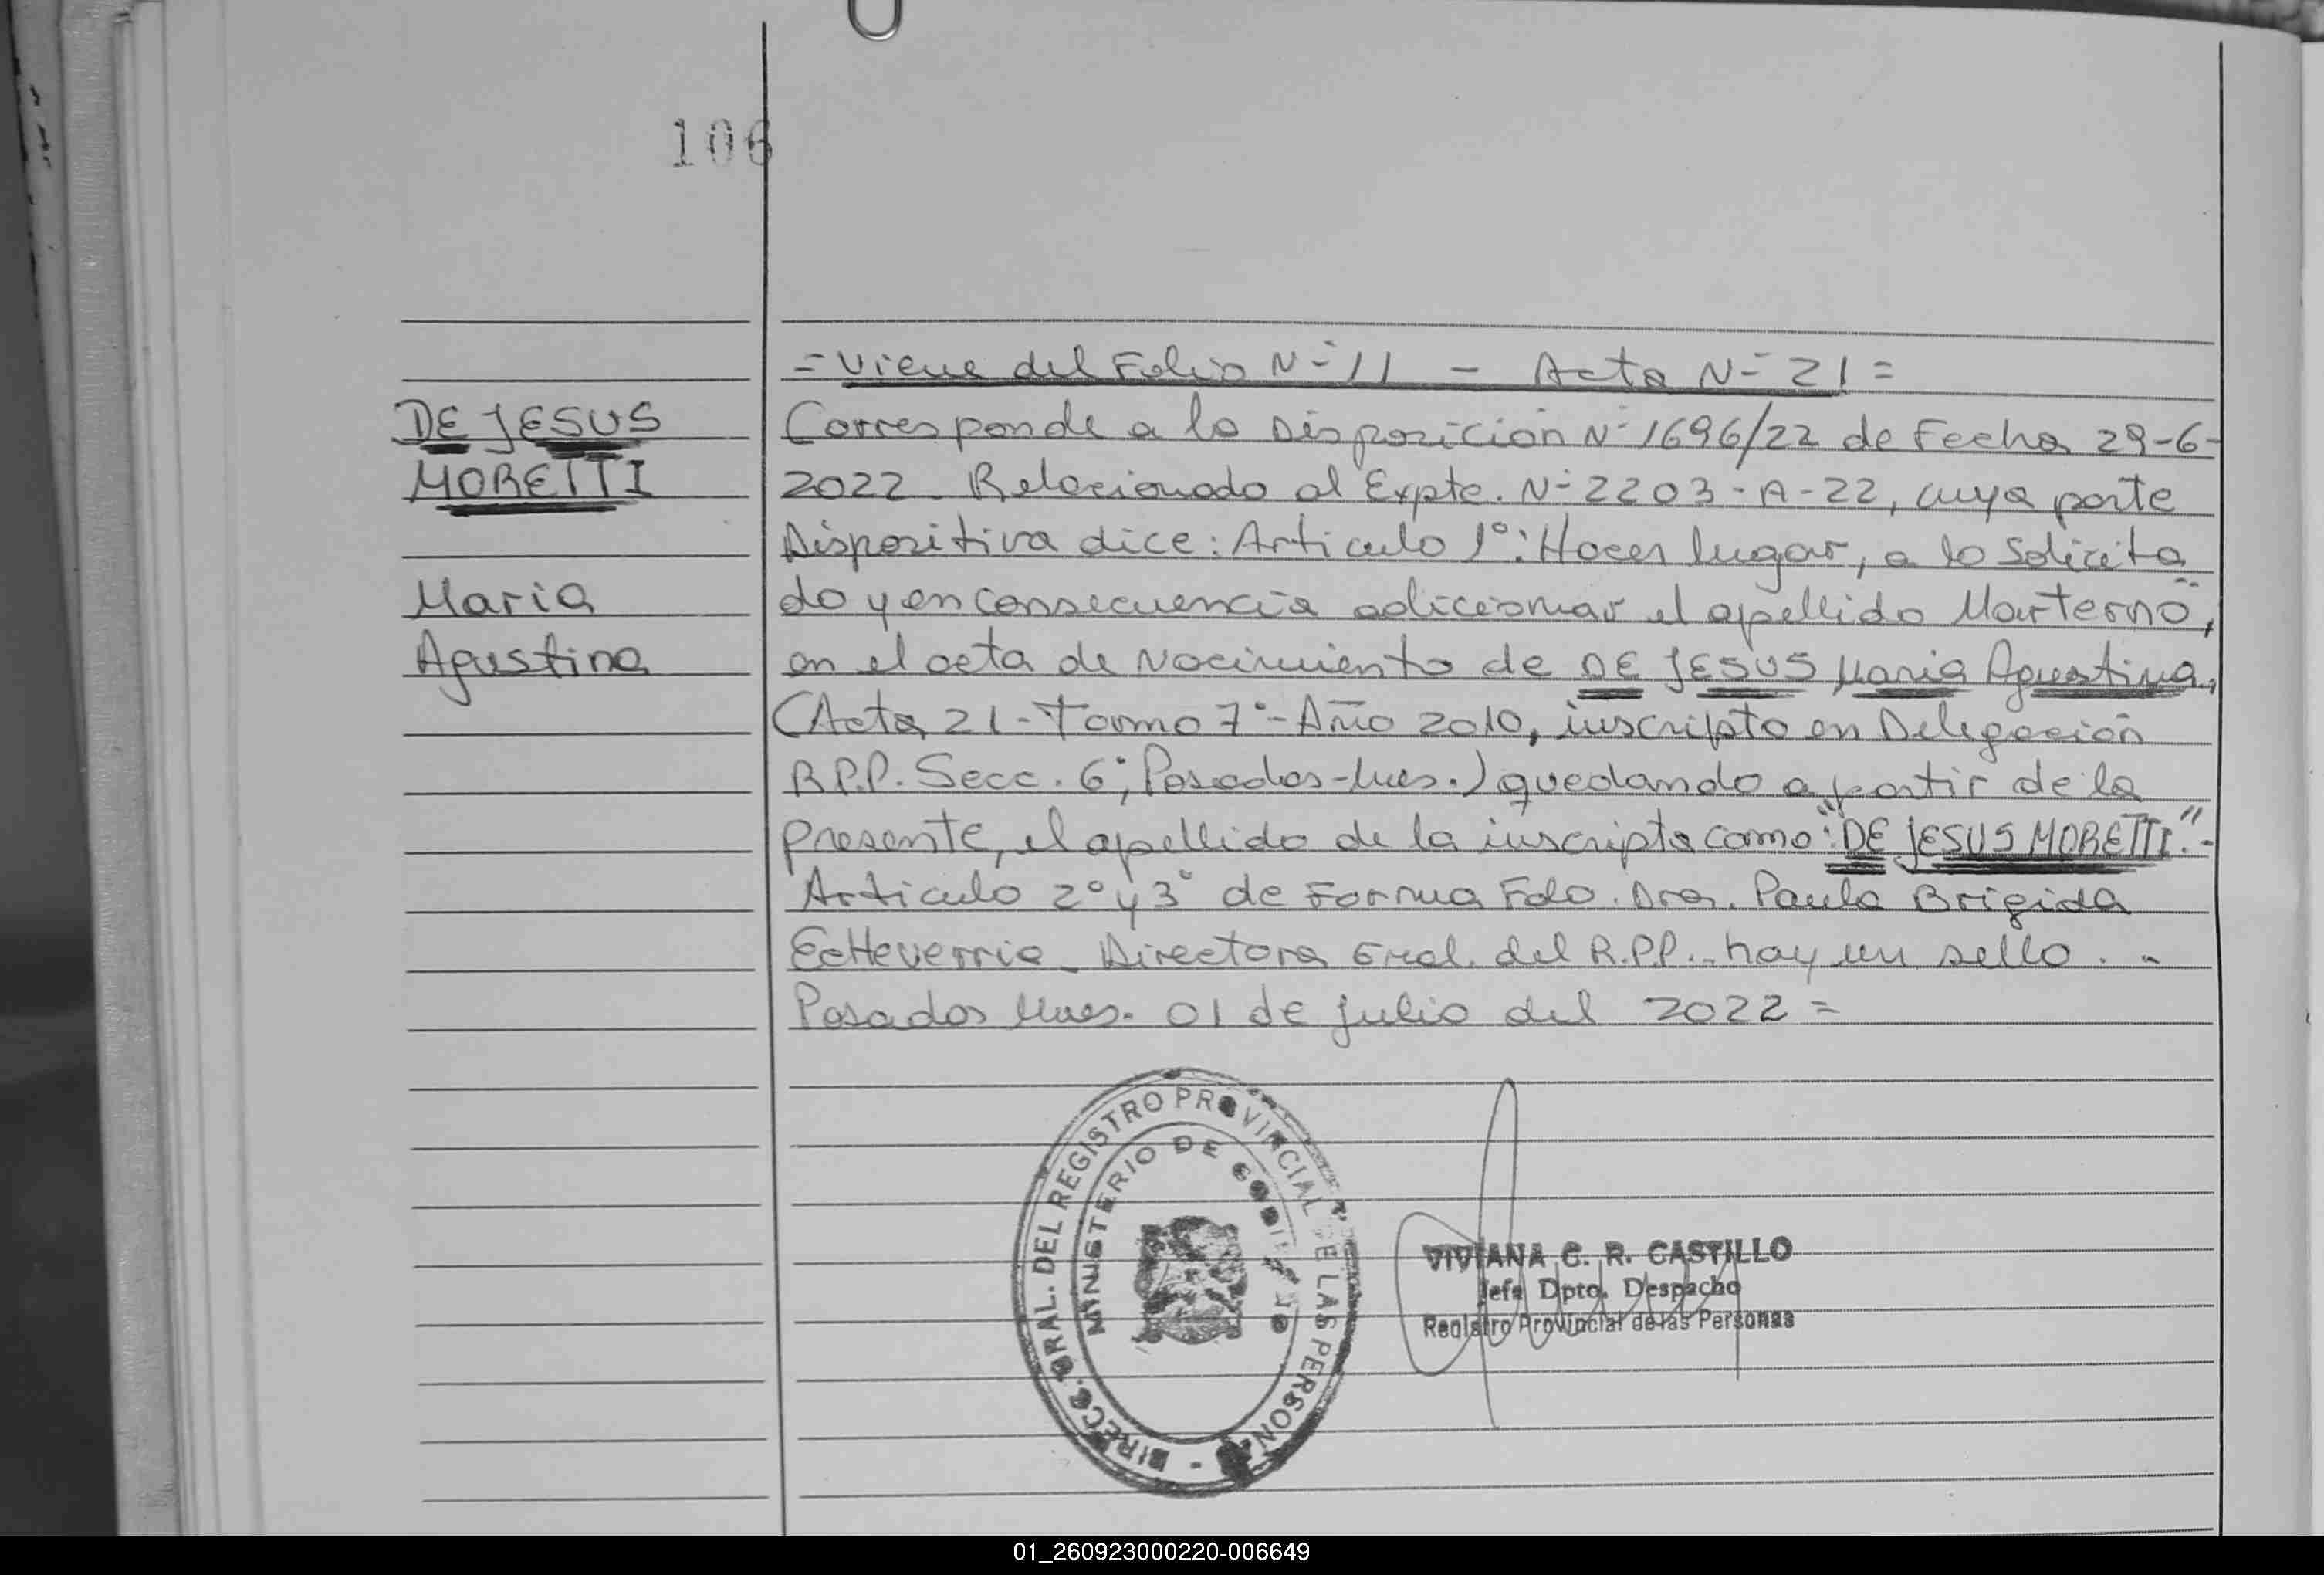 106
= Viene del Folio N° 11 - Acta N° 21 =
DE JESUS
MORETTI
Maria
Agustina
Corresponde a lo Disposición N° 1696/22 de Fecha 29-6-
2022. Relacionado al Expte. N° 2203-A-22, cuya parte
Dispositiva dice: Articulo 1°: Hacer lugar, a lo solicita
do y en consecuencia adicionar el apellido Marterno,
en el acta de Nacimiento de DE JESUS Maria Agustina,
(Acta 21 - Tomo 7° - Año 2010, inscripto en Delegación
R.P.P. Secc. 6°, Posadas-Mnes.) quedando a partir de la
presente, el apellido de la inscripta como: "DE JESUS MORETTI".-
Articulo 2° y 3° de Forma Fdo. Dra. Paula Brigida
EcHeverria - Directora Gral. del R.P.P. - hay un sello . -
Posadas Mnes. 01 de julio del 2022 =
DIRECC. GRAL. DEL REGISTRO PROVINCIAL DE LAS PERSON.
MINISTERIO DE GOBIERNO
VIVIANA C. R. CASTILLO
Jefe Dpto. Despacho
Registro Provincial de las Personas
01_260923000220-006649